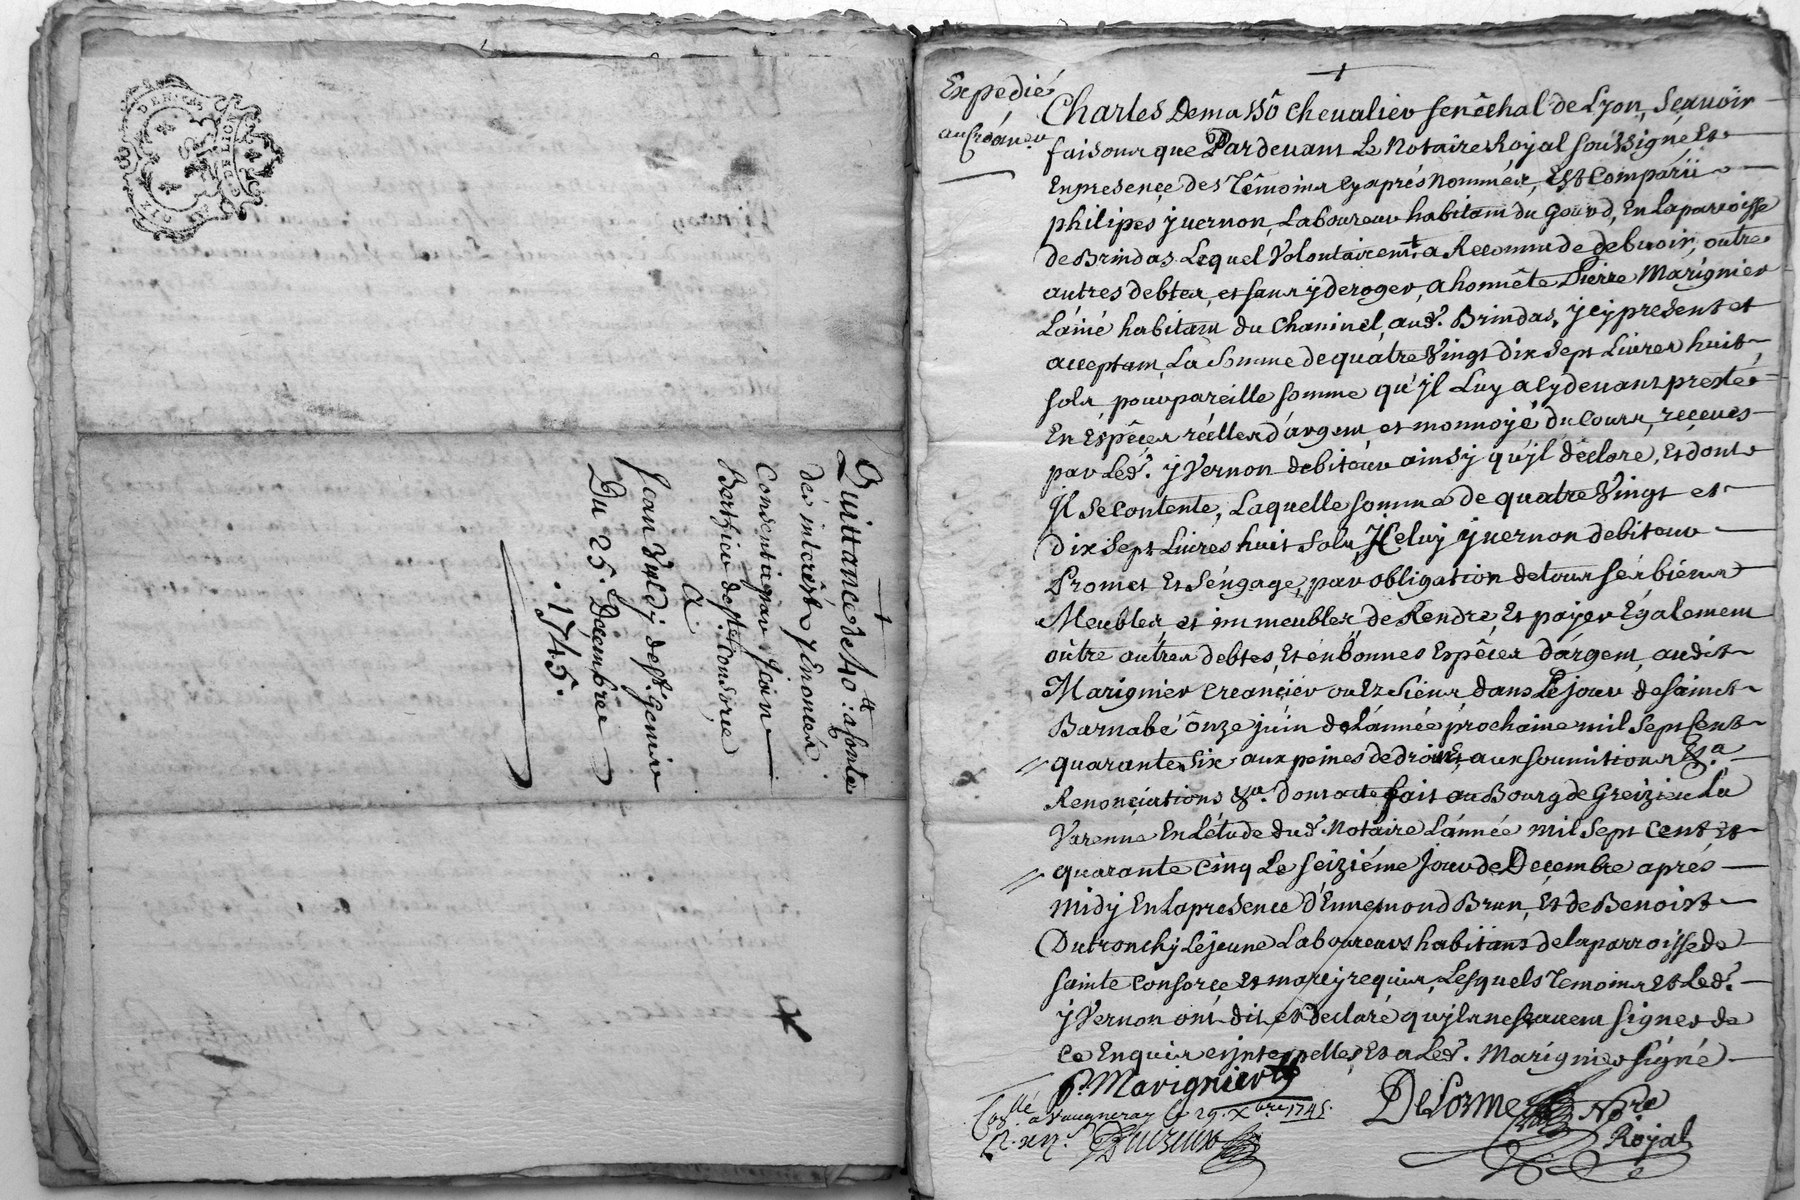 GEN. DE LION
Quittance de 40ᵗᵗ: a Conte
des interêsts y Enoncés.
Consentie par Jean
Bertficu de Sᵗᵉ Consorce
A
Jean Valdy de Sᵗ. Genis
Du 25ᵉ. Décembre
.1745.
Expédié
au Créan.er
Charles Demassô Chevalier senêchal de Lyon, Scavoir
faisons que Pardevant Le Notaire Royal soussigné Et
En presençe des Têmoins Cy aprés Nommés, Est Comparü
philipes yvernon, Laboureur habitant du Gourd, En la parroisse
de Brindas Lequel Volontairemt. a Reconnu de debvoir, outre
autres debtes, et sans y deroger, a honnête Pierre Marignier
L'ainé habitant du Chaninel, aud. Brindas, jcy present et
acceptant, La somme de quatre Vingt dix sept Livres huit
sols, pour pareille somme qu'jl Luy a Cy devant prestée
En Espêces réelles d'argent, et monnoye du Cours, reçeues
par Led. yVernon debiteur ainsy qu'jl déclare, Et dont
jl se contente, Laquelle somme de quatre Vingt et
Dix sept Livres huit sols, jCeluy yvernon debiteur
Promet Et s'engage, par obligation de tous ses biens
Meubles et immeubles de Rendre, Et payer Egalement
oûtre autres debtes, Et en bonnes Espêces d'argent, audit
Marignier creançier ou Ez siens dans Le jour de saint
Barnabé ônze juin de L'année prochaine mil sept Cent
quarante six aux peines de droit, Et aux soumitions &.a
Renonçiations &a. dont acte fait au Bourg de Greizieu La
Varenne En L'étude dud. Notaire L'année mil sept Cent, Et
quarante Cinq Le seiziéme Jour de Decembre aprés
midy En la presence d'Ennemond Brun, Et de Benoist
Dutronchy Le jeune Laboureurs habitans de la parroisse de
sainte Consorce Et marcy requis, Lesquels Temoins Et Led.
yVernon ont dit et declaré qu'jls ne sçavent signer de
ce Enquis et jnterpellés, Et a Led. Marignier signé.
P. Marignier
DeLorme Nore
Royal
Collé. a Vaugneray le 29. Xbre 1745.